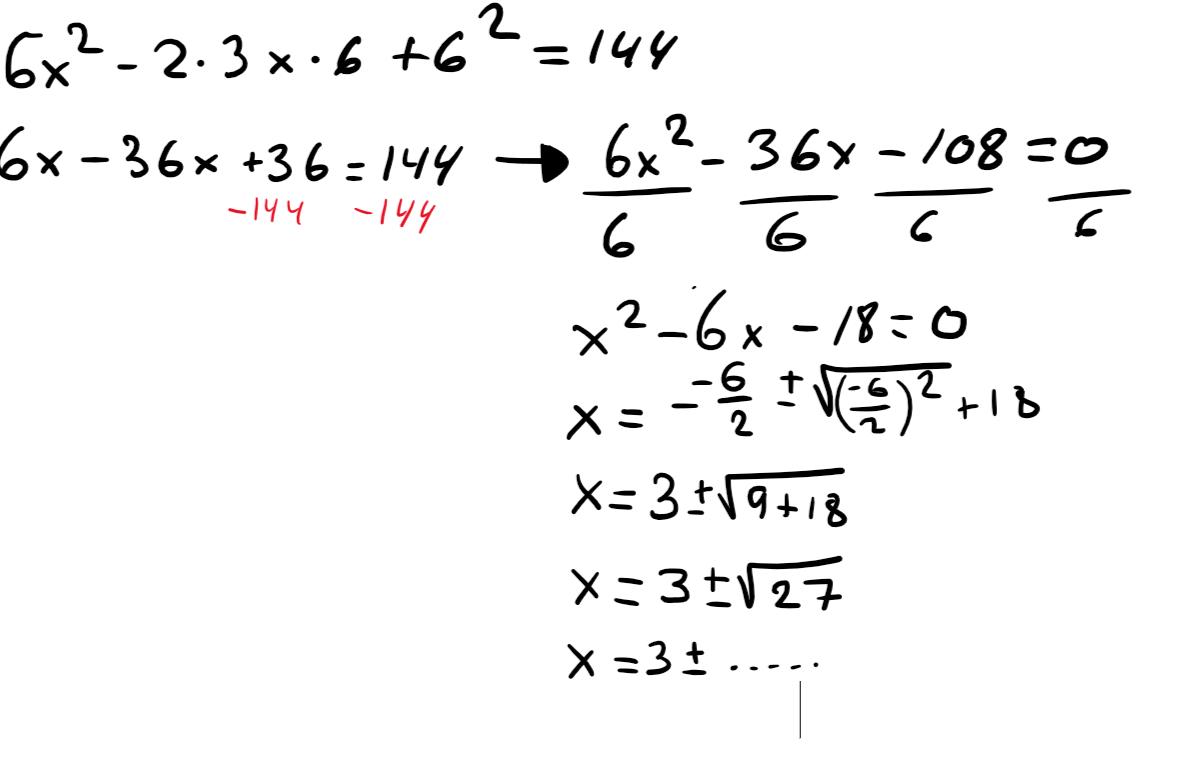 6x² - 2·3x·6 + 6² = 144
6x - 36x + 36 = 144 → 6x² - 36x - 108 = 0
-144 -144 6 6 6 6
x² - 6x - 18 = 0
x = - -6/2 ± √(-6/2)² + 18
x = 3 ± √9+18
x = 3 ± √27
x = 3 ± .....